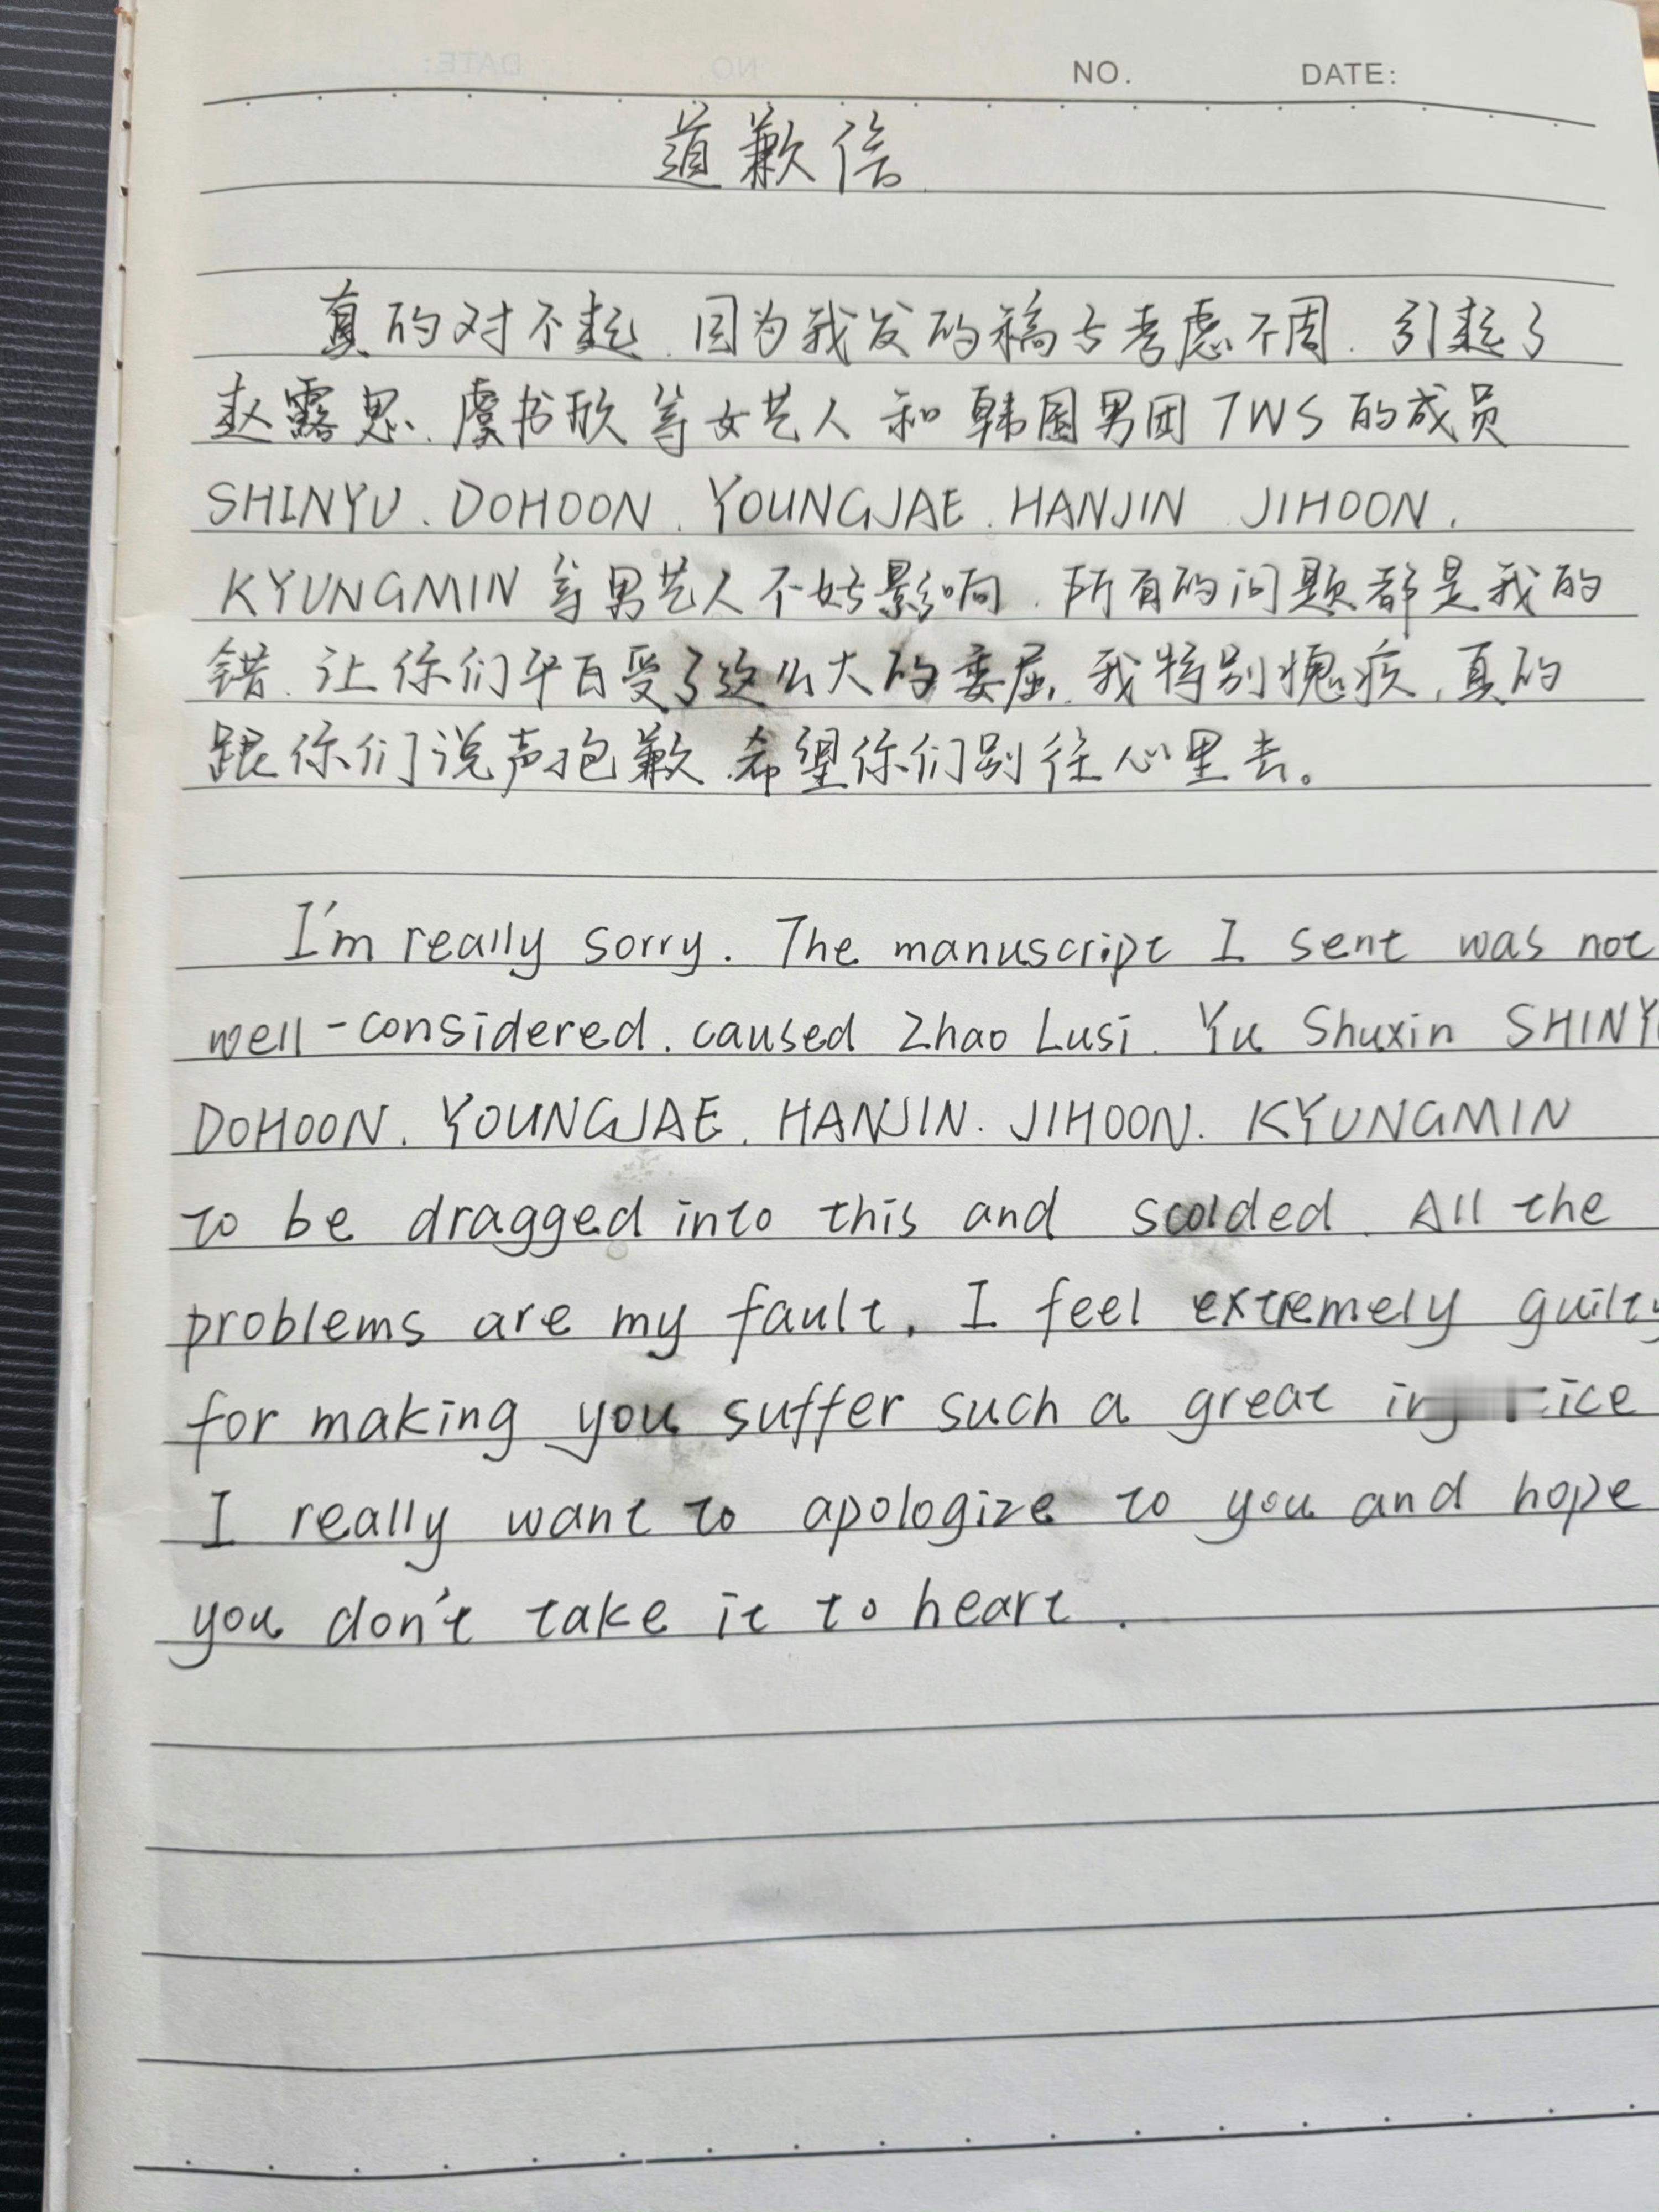 NO. DATE:
道歉信
真的对不起、因为我发的稿子考虑不周、引起了
赵露思、虞书欣等女艺人和韩国男团TWS的成员
SHINYU、DOHOON、YOUNGJAE、HANJIN JIHOON、
KYUNGMIN等男艺人不好影响、所有的问题都是我的
错、让你们平白受了这么大的委屈、我特别愧疚、真的
跟你们说声抱歉、希望你们别往心里去。
I'm really sorry. The manuscript I sent was not
well-considered. caused Zhao Lusi. Yu Shuxin
DOHOON. YOUNGJAE. HANJIN. JIHOON. KYUNGMIN
to be dragged into this and scolded. All the
problems are my fault. I feel extremely guilty
for making you suffer such a great
I really want to apologize to you and hope
you don't take it to heart.